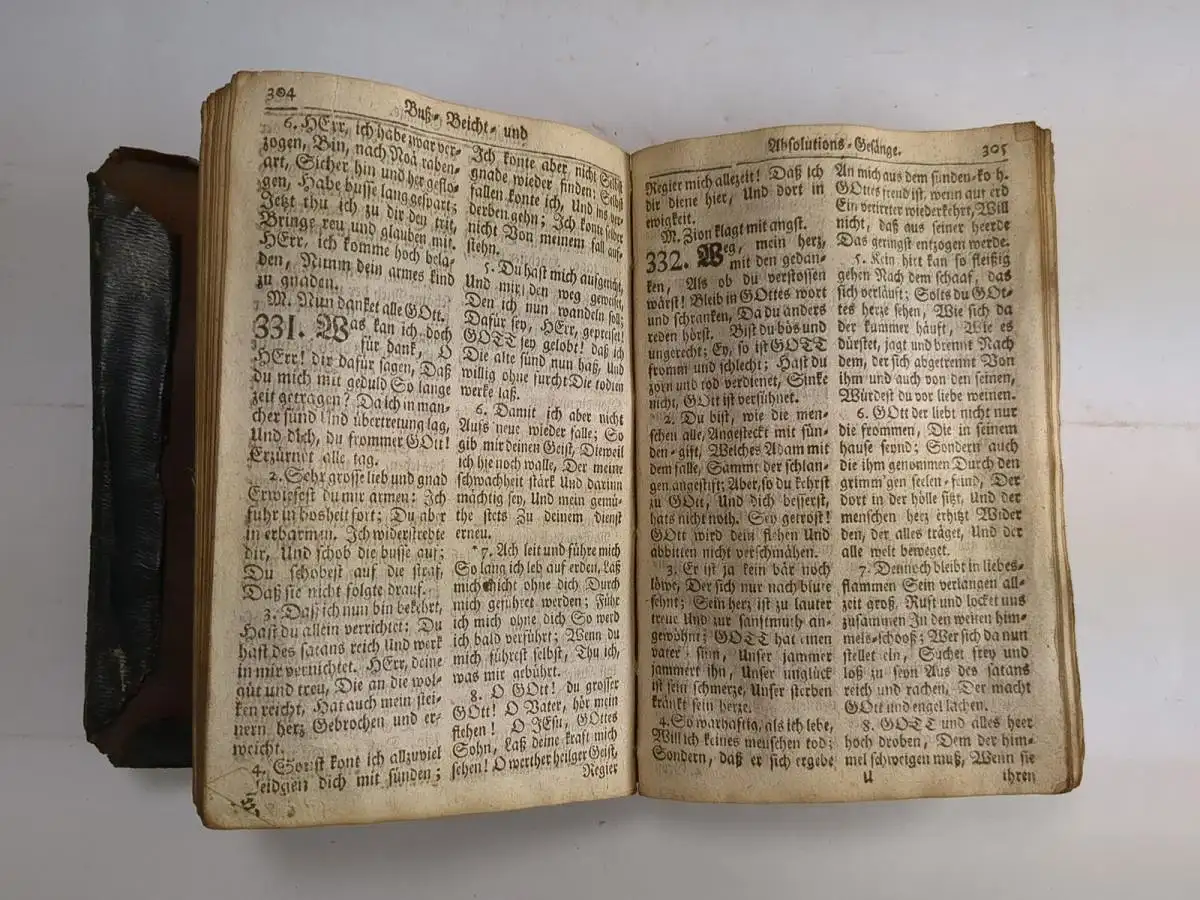 304
Buß- Beicht- und
6. HErr, ich habe zwar ver-
zogen, Bin, nach Noä raben-
art, Sicher hin und her geflo-
gen, Habe busse lang gespart;
Jetzt thu ich zu dir den trit,
Bringe reu und glauben mit.
HErr, ich komme hoch bela-
den, Nimm dein armes kind
zu gnaden.
M. Nun danket alle GOtt.
331. Was kan ich doch
für dank, O
HErr! dir dafür sagen, Daß
du mich mit geduld So lange
zeit getragen? Da ich in man-
cher sünd Und übertretung lag,
Und dich, du frommer GOtt!
Erzürnet alle tag.
2. Sehr grosse lieb und gnad
Erwiesest du mir armen: Ich
fuhr in bosheit fort; Du aber
in erbarmen. Ich widerstrebte
dir, Und schob die busse auf;
Du schobest auf die straf,
Daß sie nicht folgte drauf.
3. Daß ich nun bin bekehrt,
Hast du allein verrichtet: Du
hast des satans reich Und werk
in mir vernichtet. HErr, deine
güt und treu, Die an die wol-
ken reicht, Hat auch mein stei-
nern herz Gebrochen und er-
weicht.
4. Sonst kont ich allzuviel
leidgen dich mit sünden;
Ich konte aber, nicht Selbst
gnade wieder finden; Selbst
fallen konte ich, Und ins ver-
derben gehn; Ich konte selber
nicht Von meinem fall auf-
stehn.
5. Du hast mich aufgericht,
Und mir den weg geweiset,
Den ich nun wandeln soll;
Dafür sey, HErr, gepreiset!
GOTT sey gelobt! daß ich
Die alte sünd nun haß, Und
willig ohne furcht Die todten
werke laß.
6. Damit ich aber nicht
Aufs neue wieder falle; So
gib mir deinen Geist, Dieweil
ich hie noch walle, Der meine
schwachheit stärk Und darinn
mächtig sey, Und mein gemü-
the stets Zu deinem dienst
erneu.
*7. Ach leit und führe mich
So lang ich leb auf erden, Laß
mich nicht ohne dich Durch
mich geführet werden; Führ
ich mich ohne dich So werd
ich bald verführt; Wenn du
mich führest selbst, Thu ich,
was mir gebührt.
8. O GOtt! du grosser
GOtt! O Vater, hör mein
flehen! O JEsu, GOttes
Sohn, Laß deine kraft mich
sehen! O werther heilger Geist,
Regier
Absolutions-Gesänge.
305
Regier mich allezeit! Daß ich
dir diene hier, Und dort in
ewigkeit.
M. Zion klagt mit angst.
332. Weg, mein herz,
mit den gedan-
ken, Als ob du verstossen
wärst! Bleib in GOttes wort
und schranken, Da du anders
reden hörst. Bist du bös und
ungerecht; Ey, so ist GOTT
fromm und schlecht; Hast du
zorn und tod verdienet, Sinke
nicht, GOtt ist versühnet.
2. Du bist, wie die men-
schen alle, Angesteckt mit sün-
den-gift, Welches Adam mit
dem falle, Sammt der schlan-
gen angestift; Aber, so du kehrst
zu GOtt, Und dich besserst,
hats nicht noth. Sey getrost!
GOtt wird dein flehen Und
abbitten nicht verschmähen.
3. Er ist ja kein bär noch
löwe, Der sich nur nach blute
sehnt; Sein herz ist zu lauter
treue Und zur sanftmuth an-
gewöhnt; GOTT hat einen
vater-sinn, Unser jammer
jammert ihn, Unser unglück
ist sein schmerze, Unser sterben
kränkt sein herze.
4. So warhaftig, als ich lebe,
Will ich keines menschen tod;
Sondern, daß er sich ergebe
An mich aus dem sünden-koth.
GOttes freud ist, wenn auf erd
Ein verirrter wiederkehrt, Will
nicht, daß aus seiner heerde
Das geringst entzogen werde.
5. Kein hirt kan so fleißig
gehen Nach dem schaaf, das
sich verläuft; Solts du GOt-
tes herze sehen, Wie sich da
der kummer häuft, Wie es
dürstet, jagt und brennt Nach
dem, der sich abgetrennt Von
ihm und auch von den seinen,
Würdest du vor liebe weinen.
6. GOtt der liebt nicht nur
die frommen, Die in seinem
hause seynd; Sondern auch
die ihm genommen Durch den
grimm'gen seelen-feind, Der
dort in der hölle sitzt, Und der
menschen herz erhitzt Wider
den, der alles träget, Und der
alle welt beweget.
7. Dennoch bleibt in liebes-
flammen Sein verlangen all-
zeit groß, Ruft und locket uns
zusammen In den weiten him-
mels-schooß; Wer sich da nun
stellet ein, Suchet frey und
loß zu seyn Aus des satans
reich und rachen, Der macht
GOtt und engel lachen.
8. GOTT und alles heer
hoch droben, Dem der him-
mel schweigen muß, Wenn sie
U
ihren